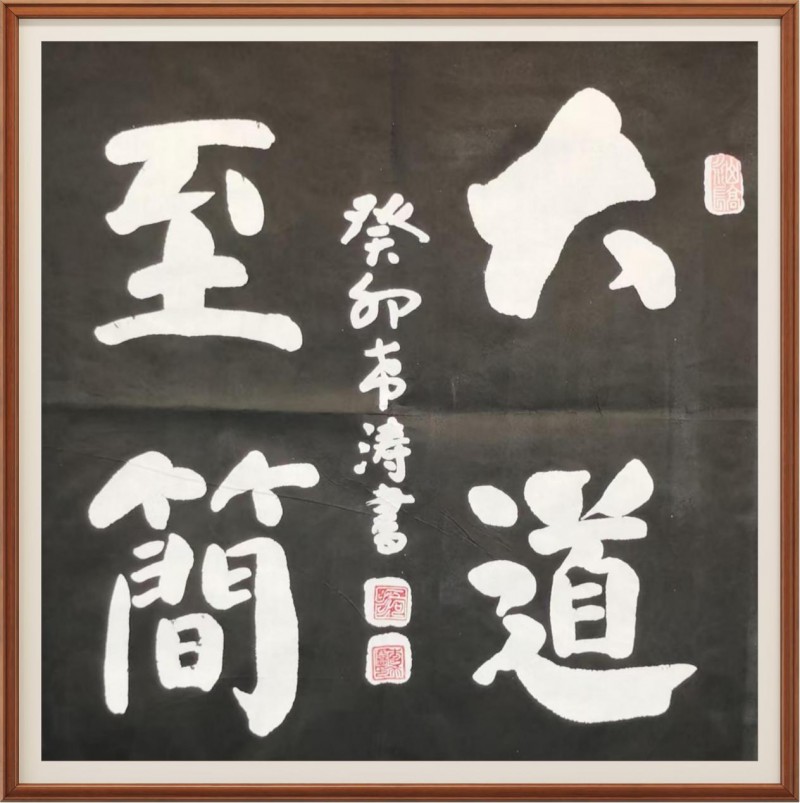 大道
至簡
癸卯韦涛書